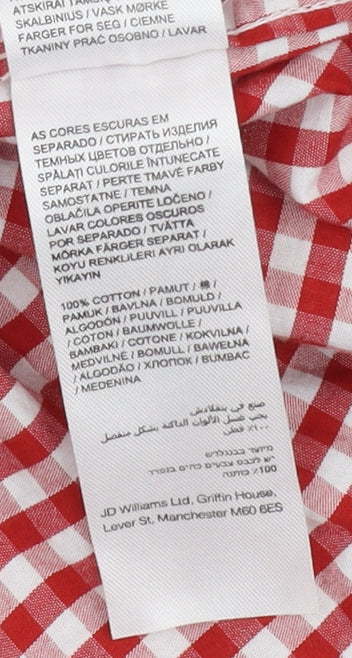 ATSKIRAI TAMSIAS
SKALBINIUS / VASK MØRKE
FARGER FOR SEG / CIEMNE
TKANINY PRAĆ OSOBNO / LAVAR
AS CORES ESCURAS EM
SEPARADO / СТИРАТЬ ИЗДЕЛИЯ
ТЕМНЫХ ЦВЕТОВ ОТДЕЛЬНО /
SPĂLAȚI CULORILE ÎNTUNECATE
SEPARAT / PERTE TMAVÉ FARBY
SAMOSTATNE / TEMNA
OBLAČILA OPERITE LOČENO /
LAVAR COLORES OSCUROS
POR SEPARADO / TVÄTTA
MÖRKA FÄRGER SEPARAT /
KOYU RENKLILERI AYRI OLARAK
YIKAYIN
100% COTTON / PAMUT / 棉 /
PAMUK / BAVLNA / BOMULD /
ALGODÓN / PUUVILL / PUUVILLA
/ COTON / BAUMWOLLE /
BAMBAKI / COTONE / KOKVILNA /
MEDVILNĖ / BOMULL / BAWEŁNA
/ ALGODÃO / ХЛОПОК / BUMBAC
/ MEDENINA
صنع في بنغلادش
يجب غسل الألوان الداكنة بشكل منفصل
١٠٠٪ قطن
מיוצר בבנגלדש
יש לכבס צבעים כהים בנפרד
100% כותנה
JD Williams Ltd, Griffin House,
Lever St, Manchester M60 6ES